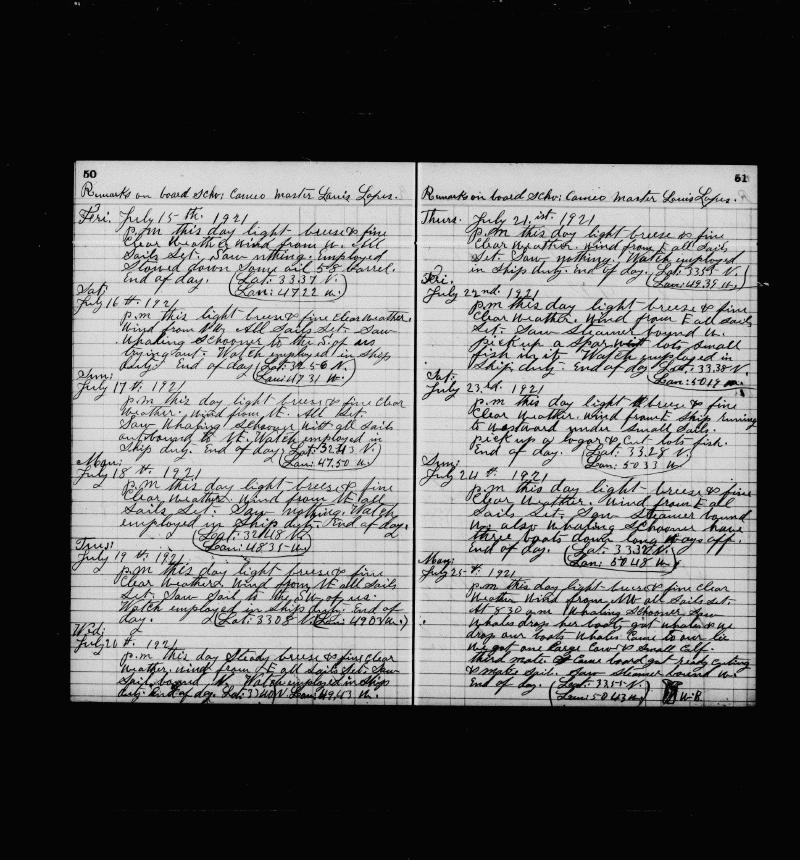 50
Remarks on board Schr: Cameo Master Louis Lopes.
Fri. July 15th. 1921
p.m this day light breese & fine
Clear Weather Wind from W. All
Sails Set. Saw nthing. Employed
Stowed down Some oil 58 barrel.
End of day. (Lat: 33.37 N.
Lon: 47.22 W.)
Sat:
July 16th. 1921
p.m this day light breese & fine Clear Weather.
Wind from NW. All Sails Set. Saw
Whaling Schooner to the S. of us
trying out. Watch employed in Ship
duty. End of day (Lat: 32.56 N.
Lon: 47.31 W.)
Sun:
July 17th. 1921
p.m this day light breese & fine Clear
Weather. Wind from N. All Set.
Saw Whaling Schooner with all Sails
out bound to N. Watch employed in
Ship duty. End of day (Lat: 32.43 N.
Lon: 47.50 W.)
Mon:
July 18th. 1921
p.m this day light breese & fine
Clear Weather. Wind from N all
Sails Set. Saw nything. Watch
employed in Ship duty. End of day.
(Lat: 32.48 N.
Lon: 48.35 W.)
Tues:
July 19th. 1921
p.m this day light breese & fine
Clear Weather. Wind from N all Sails
Set. Saw Sail to the SW of us.
Watch employed in Ship duty. End of
day. (Lat: 33.08 N. Lon: 49.04 W.)
Wed:
July 20th. 1921
p.m this day Steady breese & fine Clear
Weather. Wind from E all Sails Set. Saw
Ship bound W. Watch employed in Ship
duty. End of day. Lat: 33.40 N. Lon: 49.43 W.
51
Remarks on board Schr: Cameo Master Louis Lopes.
Thurs. July 21.ist. 1921
p.m this day light breese & fine
Clear Weather. Wind from E all Sails
Set. Saw nothing. Watch employed
in Ship duty. End of day. Lat: 33.55 N.
Lon: 49.39 W.)
Fri.
July 22nd. 1921
p.m this day light breese & fine
Clear Weather. Wind from E all Sails
Set. Saw Steamer bound W.
pick up a Spar lots Small
fish in it. Watch employed in
Ship duty. End of day. Lat: 33.38 N.
Lon: 50.17 W.
Sat.
July 23.rd. 1921
p.m this day light breese & fine
Clear Weather. Wind from E Ship runing
to Westward under Small Sails.
pick up a & Cut lots fish.
End of day. (Lat: 33.28 N.
Lon: 50.33 W.
Sun:
July 24th. 1921
p.m this day light breese & fine
Clear Weather. Wind from E all
Sails Set. Saw Steamer bound
W. also Whaling Schooner have
three boats down long Ways off.
End of day. (Lat: 33.32 N.
Lon: 50.48 W.
Mon:
July 25th. 1921
p.m this day light breese & fine Clear
Weather Wind from NW all Sails Set.
At 8.30 a.m Whaling Schooner Saw
Whales drop her boats got Whale & we
drop our boats Whales Came to our lee
We got one large Cow & Small Calf.
third mate Came board got ready Cutting
& make Sail. Saw Steamer bound W.
End of day. (Lat: 33.55 N.
Lon: 50.43 W.) W-B